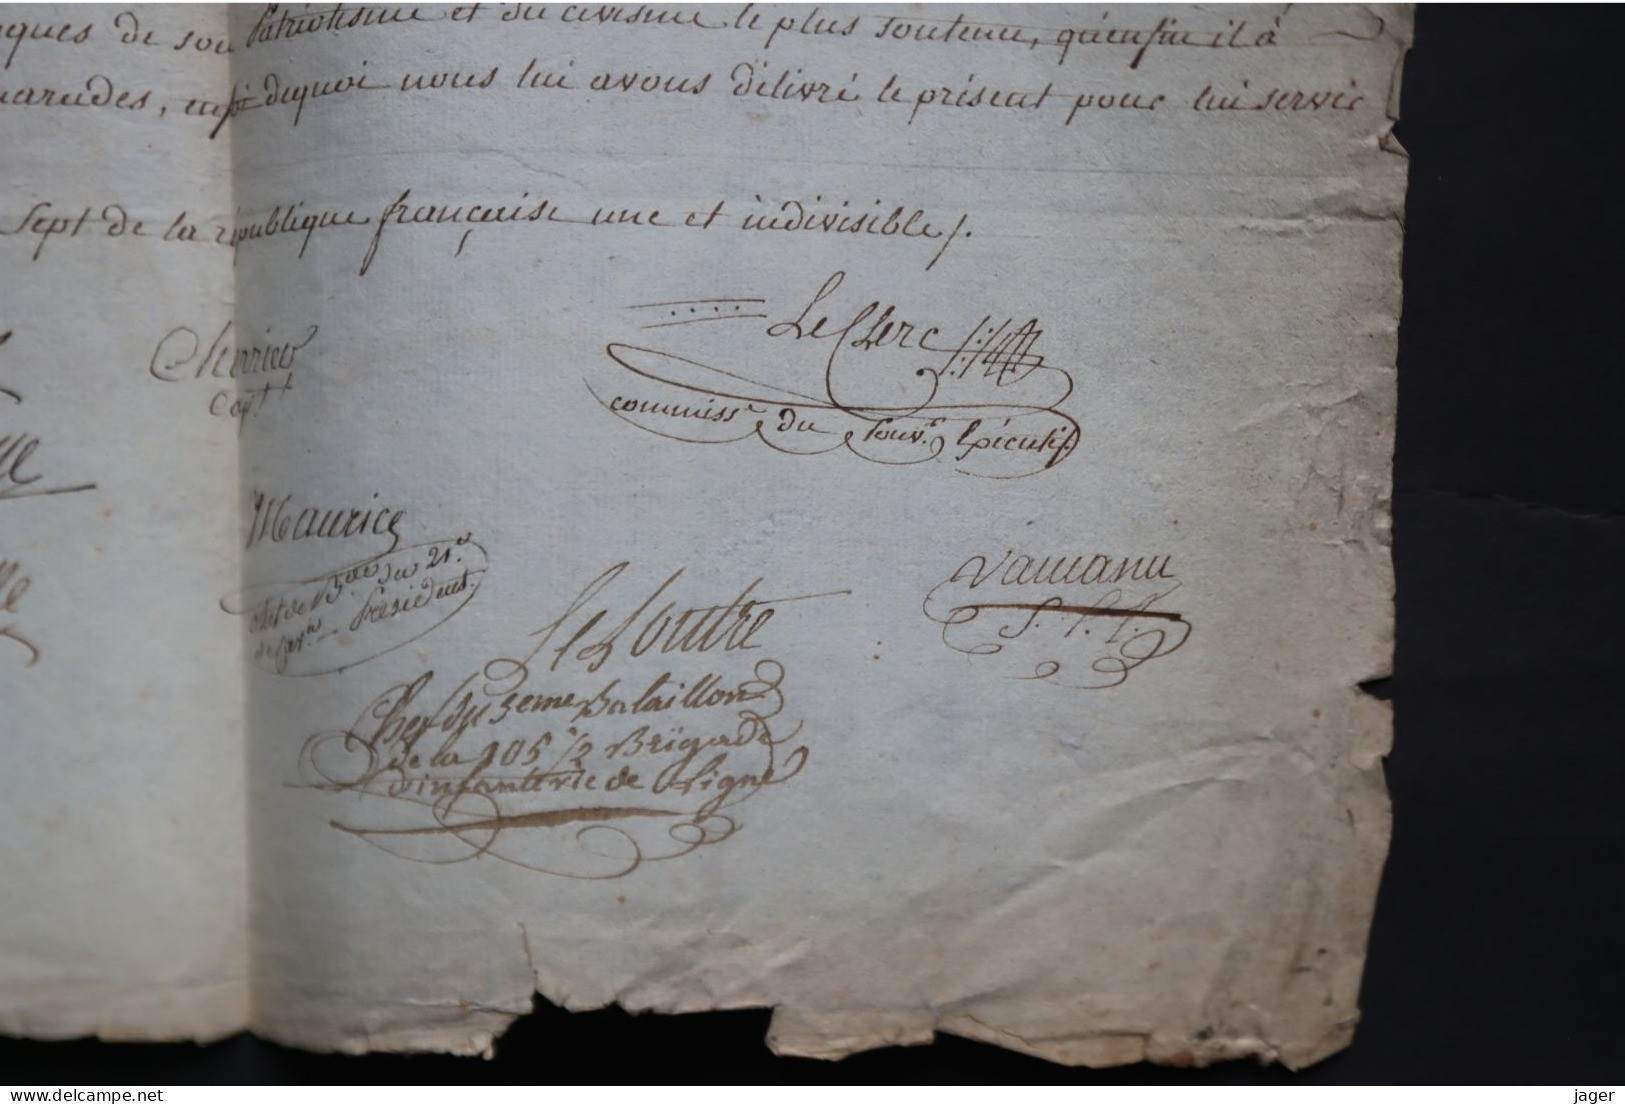 ques de son Patriotisme et du civisme le plus soutenu, qu'enfin il à
marades, en foi dequoi nous lui avons délivré le présent pour lui servir
Sept de la république française une et indivisible /.
LeClerc
capt
commissre du pouvr Exécutif.
Maurice
chef de Bon du 21e
de Cavie Président.
LeLoutre
chef du 3eme Bataillon
de la 105 1/2 Brigade
d'infanterie de Ligne
jager